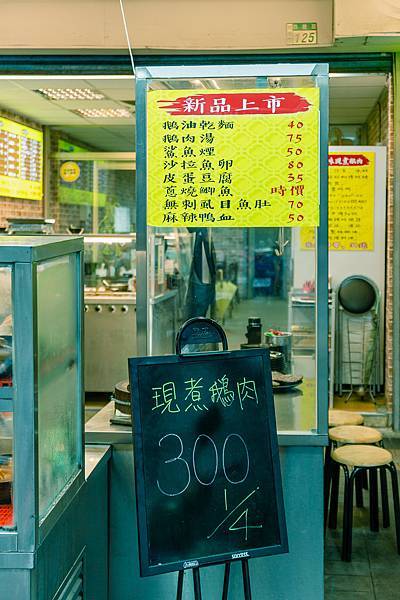 125
新品上市
鵝油乾麵 40
鵝肉湯 75
鯊魚煙 50
沙拉魚卵 80
皮蛋豆腐 35
蔥燒鯽魚 時價
無刺虱目魚肚 70
麻辣鴨血 50
現煮鵝肉
300
1/4
SUCCESS